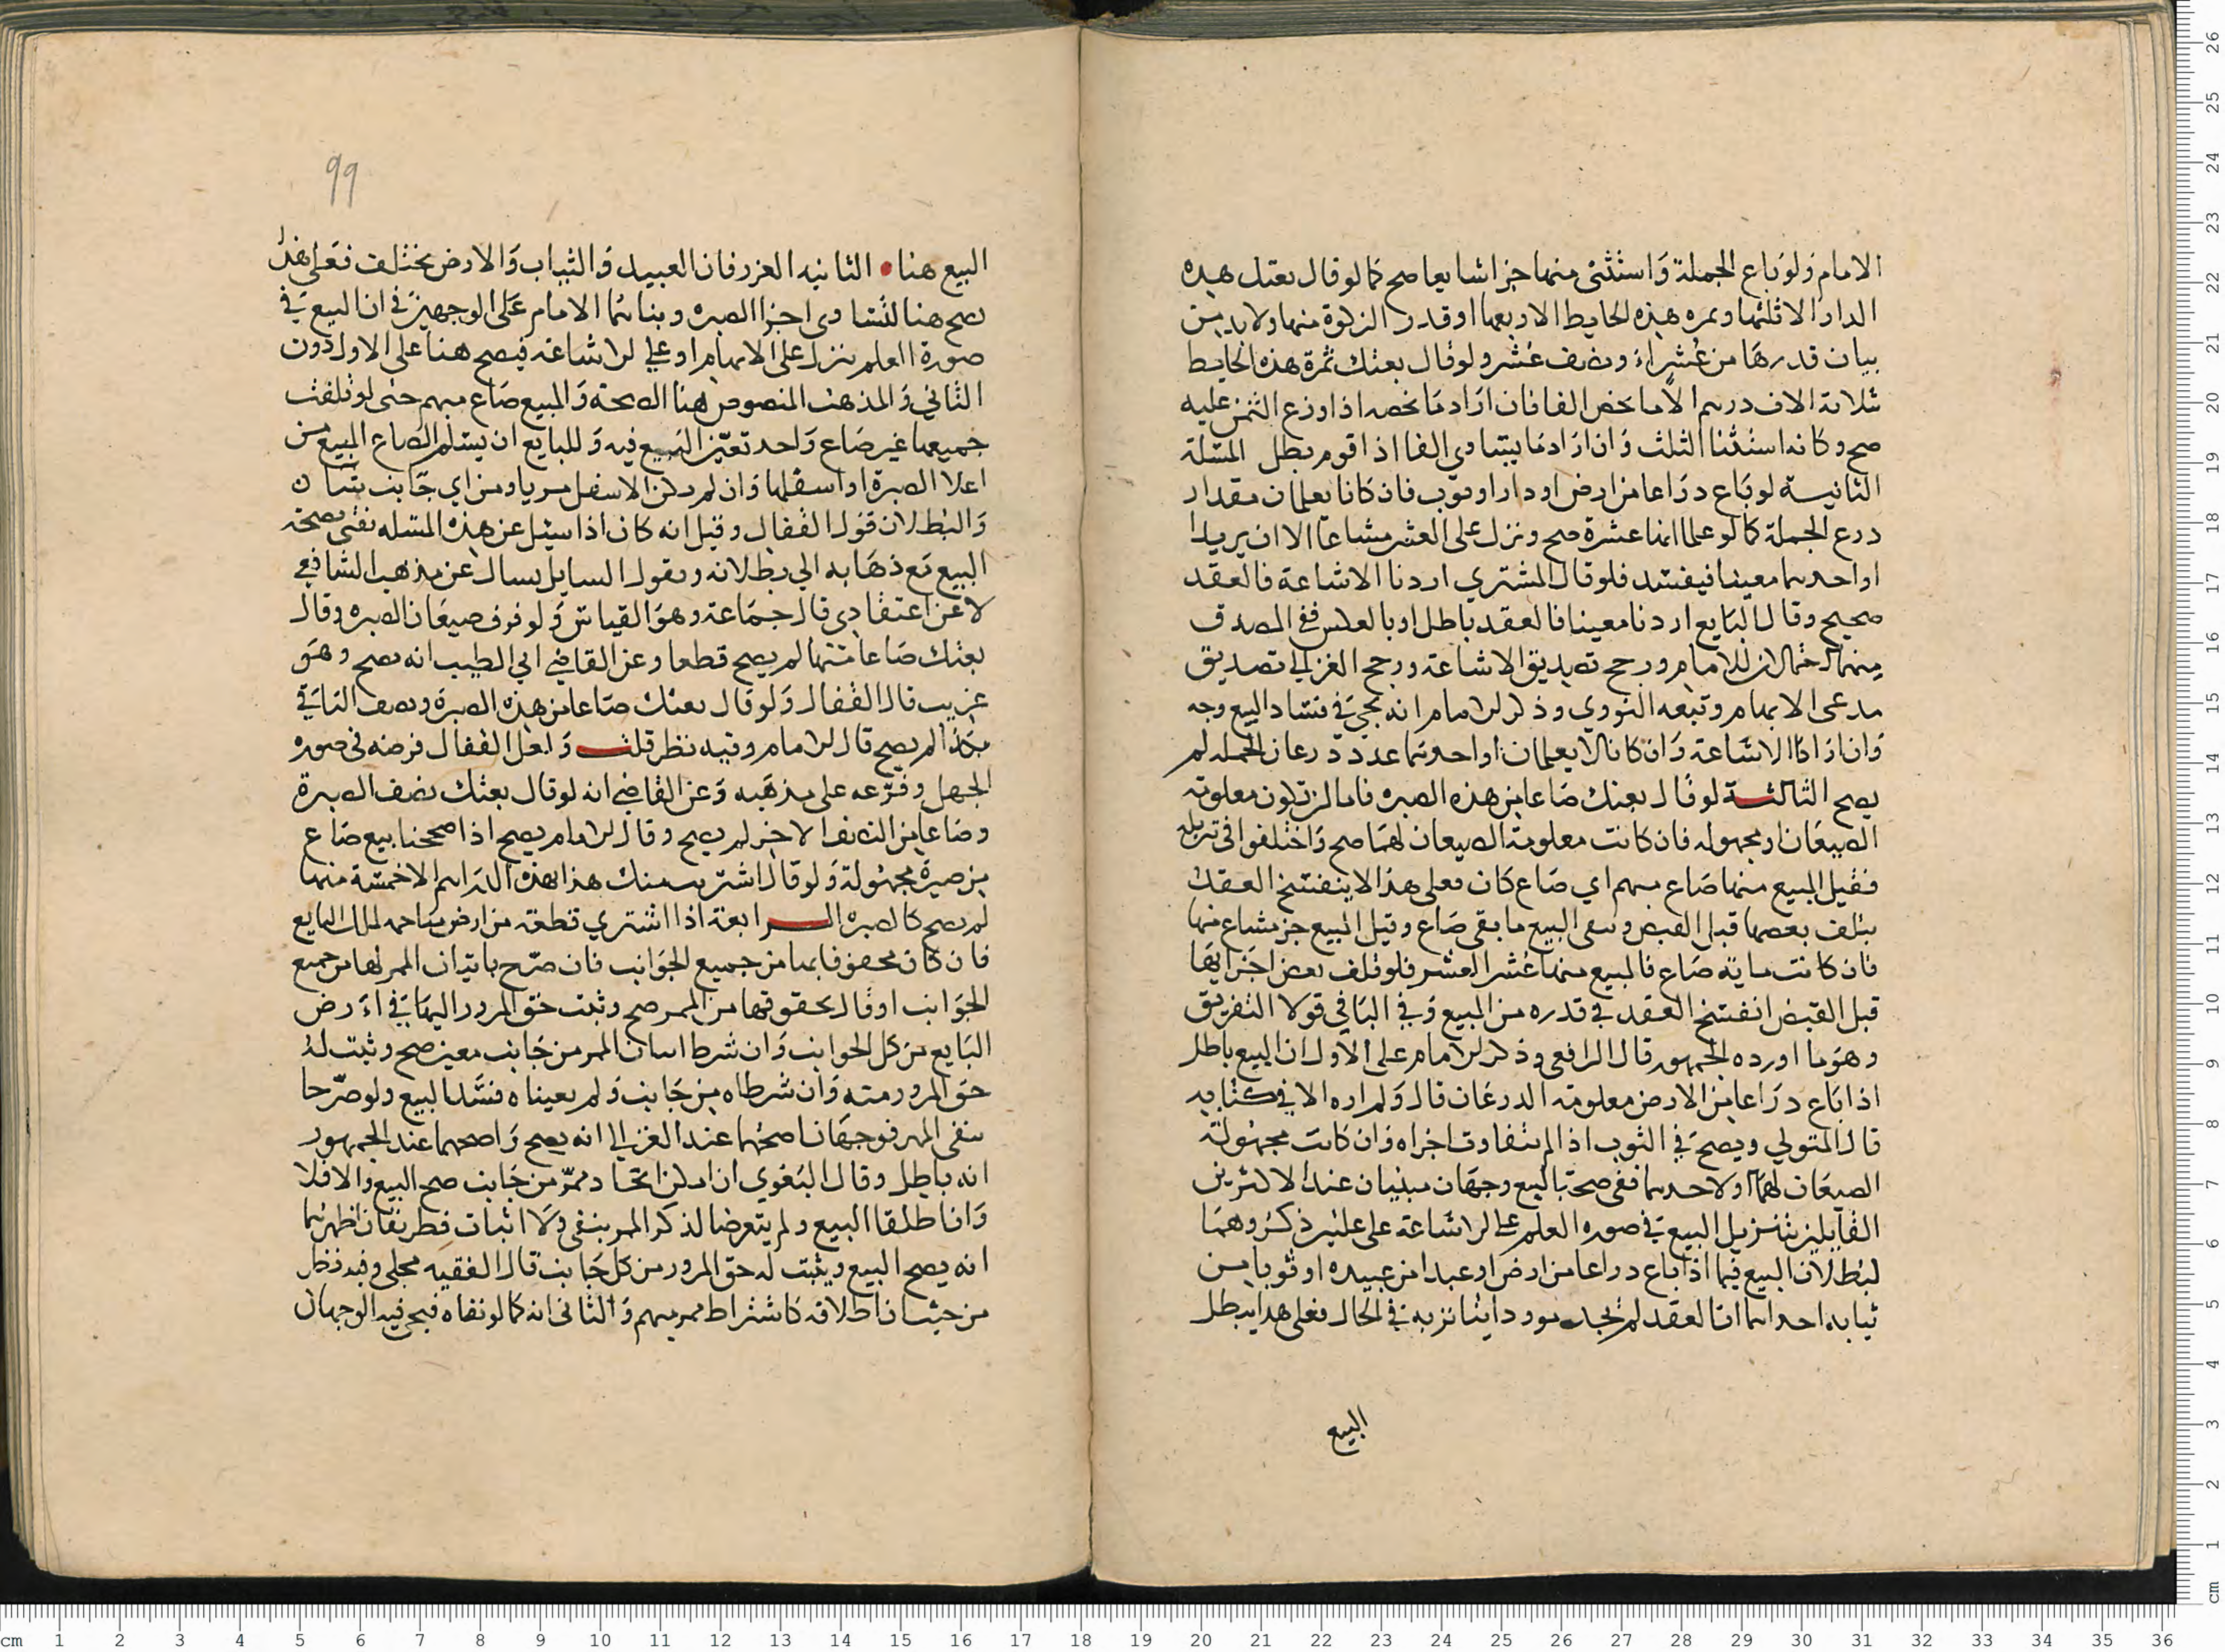 الامام ولو باع الجملة واستثنى منها جزا شايعا صح كما لو قال بعتك هذه
الدار الا ثلثها وثمره هذه الحايط الا ربعها او قدر الزكوة منها ولابد من
بيان قدرها من عشر او نصف عشر ولو قال بعتك ثمرة هذه الحايط
ثلاثة الاف درهم الا ما يخص الفا فان اراد ما يخصه اذا وزع الثمن عليه
صح وكانه استثنا الثلث وان اراد ما يتساوى الفا اذا قوم بطل المسئلة
الثانية لو باع دراعا من ارض او دار او ثوب فان كانا يعلمان مقدار
درع الجملة كما لو علما انها عشرة صح ونزل على العشر مشاعا الا ان يريدا
او احدهما معينا فيفسد فلو قال المشتري اردنا الاشاعة فالعقد
صحيح وقال البايع اردنا معينا فالعقد باطل او بالعكس ففي المصدق
منهما احتمالان للامام ورجح تصديق الاشاعة ورجح الغزالي تصديق
مدعى الابهام وتبعه النووي وذكر الامام انه يجي في فساد البيع وجه
وان ارادا الاشاعة وان كانا لا يعلمان او احدهما عدد درعان الجمله لم
يصح الثالثة لو قال بعتك صاعا من هذه الصبره فاما ان تكون معلومة
الصيعان او مجهوله فان كانت معلومة الصيعان لهما صح واختلفوا في تنزيله
فقيل المبيع منها صاع مبهم اي صاع كان فعلى هذا لا ينفسخ العقد
بتلف بعضها قبل القبض وبقى البيع ما بقى صاع وقيل المبيع جز مشاع منها
فان كانت مايه صاع فالمبيع منها عشر العشر فلو تلف بعض اجزايها
قبل القبض انفسخ العقد في قدره من المبيع وفي الباقي قولا التفريق
وهو ما اورده الجمهور قال الرافعي وذكر الامام على الاول ان البيع باطل
اذا باع دراعا من الارض معلومة الدرعان قال ولم اره الا في كتابه
قال المتولي ويصح في الثوب اذا لم تتفاوت اجزاه وان كانت مجهولة
الصيعان لهما او لاحدهما ففي صحة البيع وجهان مبنيان عند الاكثرين
القايلين بتنزيل البيع في صوره العلم على الاشاعة على علتين ذكروهما
لبطلان البيع فيما اذا باع دراعا من ارض او عبدا من عبيده او ثوبا من
ثيابه احداهما ان العقد لم يجد موردا يتاثر به في الحال فعلى هذا يبطل
البيع
99
البيع هنا • الثانيه الغرر فان العبيد والثياب والارض يختلف فعلى هذا
يصح هنا لتساوى اجزا الصبره وبناهما الامام على الوجهين في ان البيع في
صورة العلم ينزل على الابهام او على الاشاعة فيصح هنا على الاول دون
الثاني والمذهب المنصوص هنا الصحة والمبيع صاع مبهم حتى لو تلفت
جميعها غير صاع واحد تعين البيع فيه وللبايع ان يسلم الصاع المبيع من
اعلا الصبرة او اسفلها وان لم يكن الاسفل مريا ومن اي جانب شان
والبطلان قول القفال وقيل انه كان اذا سئل عن هذه المسئله يفتى بصحة
البيع مع ذهابه الي بطلانه ويقول السايل يسال عن مذهب الشافعي
لا عن اعتقادي قال جماعة وهو القياس ولو فرق صيعان الصبره وقال
بعتك صاعا منها لم يصح قطعا وعن القاضي ابي الطيب انه يصح وهو
غريب قال القفال ولو قال بعتك صاعا من هذه الصبرة ونصف الباقي
بكذا لم يصح قال الامام وفيه نظر قلت ولعل القفال فرضه في صوره
الجهل وفرعه على مذهبه وعن القاضي انه لو قال بعتك نصف الصبرة
وصاعا من النصف الاخر لم يصح وقال الامام يصح اذا صححنا بيع صاع
من صبرة مجهولة ولو قال اشتريت منك هذا بهذه الدراهم الا خمسة منها
لم يصح كالصبره الرابعة اذا اشتري قطعة من ارض ساحه لملك البايع
فان كان محفوفا بها من جميع الجوانب فان صرح باثبات الممر لها من جميع
الجوانب او قال بحقوقها من الممر صح وثبت حق المرور اليها في ارض
البايع من كل الجوانب وان شرط اثبات الممر من جانب معين صح وثبت له
حق المرور منه وان شرطاه من جانب ولم يعيناه فسد البيع ولو صرحا
بنفى الممر فوجهان اصحهما عند الغزالي انه يصح واصحهما عند الجمهور
انه باطل وقال البغوي ان امكن اتخاد ممر من جانب صح البيع والا فلا
وان اطلقا البيع ولم يتعرضا لذكر الممر بنفى ولا اثبات فطريقان اظهرهما
انه يصح البيع ويثبت له حق المرور من كل جانب قال الفقيه مجلي وفيه نظر
من حيث ان اطلاقه كاشتراط ممر مبهم والثاني انه كما لو نفاه فيجي فيه الوجهان